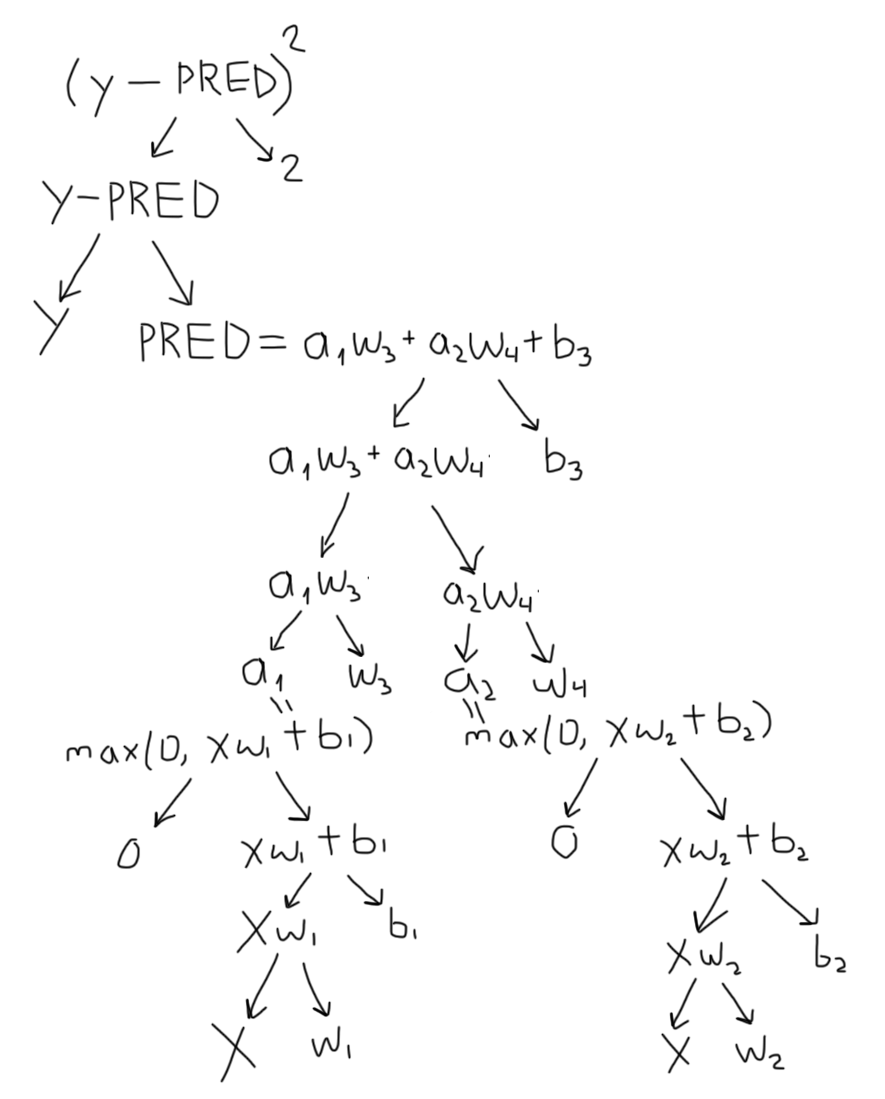 (y − PRED)²
2
y−PRED
y
PRED = a₁w₃ + a₂w₄ + b₃
a₁w₃ + a₂w₄ b₃
a₁w₃ a₂w₄
a₁ w₃ a₂ w₄
= =
max(0, xw₁ + b₁) max(0, xw₂ + b₂)
0 xw₁ + b₁ 0 xw₂ + b₂
xw₁ b₁ xw₂ b₂
x w₁ x w₂